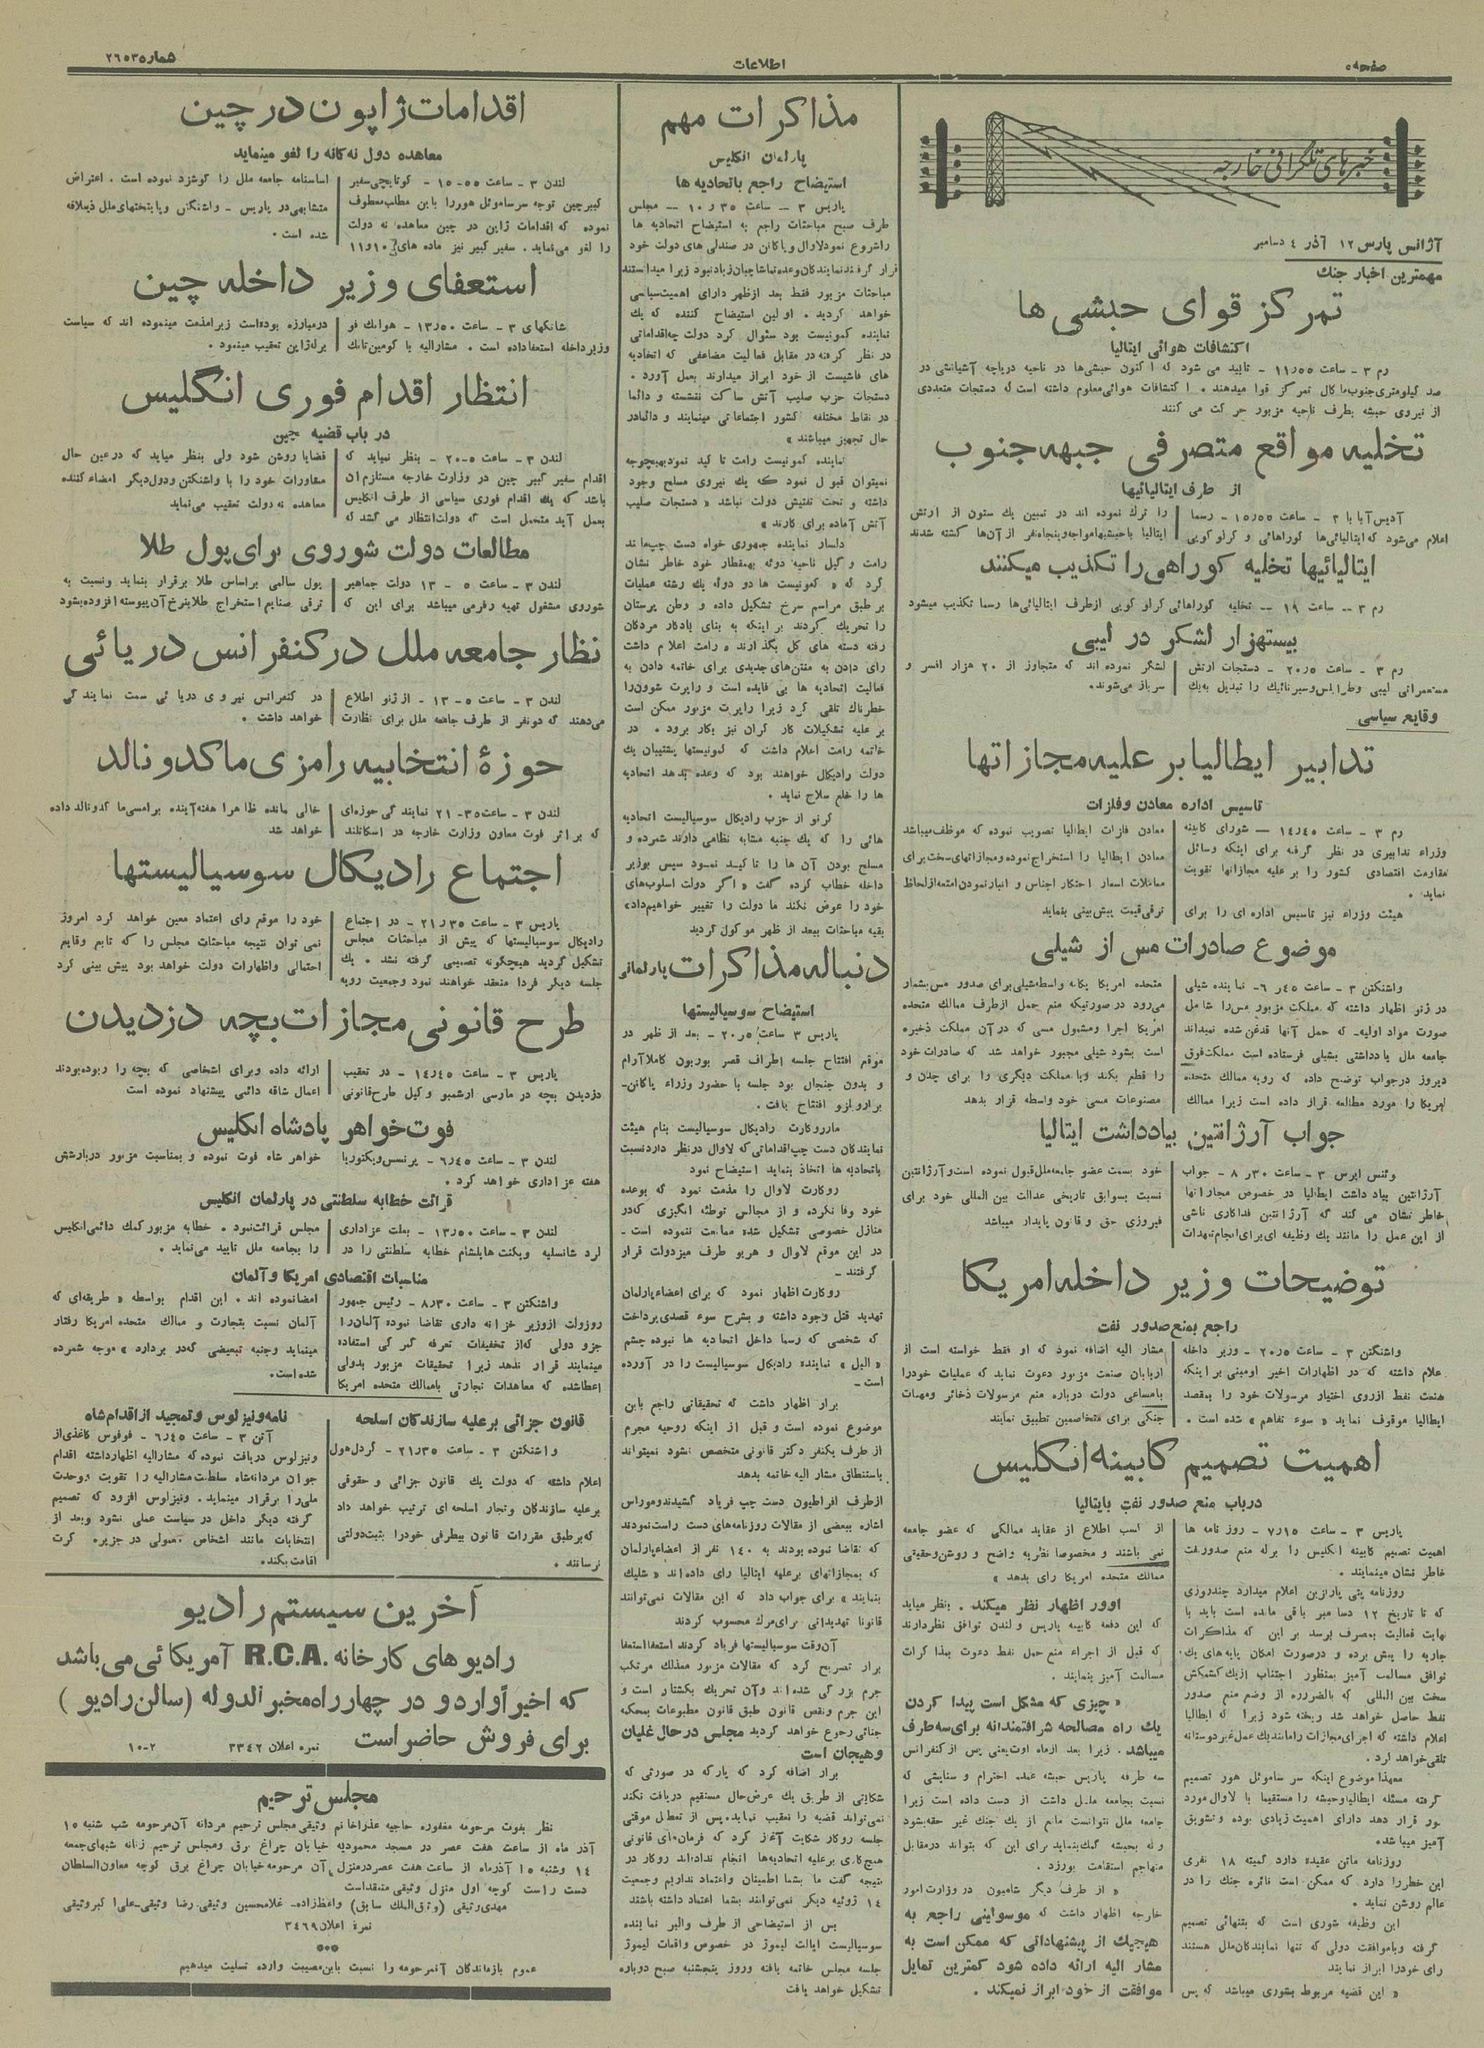 صفحه ۵
اطلاعات
شماره ۲۶۵۳
خبرهای تلگرافی خارجه
آژانس پارس ۱۲ آذر ۴ دسامبر
مهمترین اخبار جنك
تمرکز قوای حبشی ها
اکتشافات هوائی ایتالیا
رم ۳ ـ ساعت ۱۱٫۵۵ - تأیید می شود که اکنون حبشی‌ها در ناحیه دریاچه آشیانشی در
صد کیلومتری جنوب ماکال تمرکز قوا میدهند . اکتشافات هوائی معلوم داشته است که دستجات متعددی
از نیروی حبشه بطرف ناحیه مزبور حرکت می کنند
تخلیه مواقع متصرفی جبهه جنوب
از طرف ایتالیائیها
آدیس آبابا ۳ ـ ساعت ۱۵٫۵۵ - رسما
اعلام می‌شود که ایتالیائی‌ها کوراهائی و کرلوکویی
را ترك نموده اند در تمبین یك ستون از ارتش
ایتالیا با حبشیها مواجه و پنجاه نفر از آن‌ها کشته شدند
ایتالیائیها تخلیه کوراهی را تکذیب میکنند
رم ۳ ـ ساعت ۱۹ ـ تخلیه کوراهائی کرلوکویی از طرف ایتالیائی‌ها رسما تکذیب میشود
بیستهزار لشکر در لیبی
رم ۳ ـ ساعت ۲۰٫۵ - دستجات ارتش
مستعمراتی لیبی وطرابلس وسیرنائیك را تبدیل به یك
لشگر نموده اند که متجاوز از ۲۰ هزار افسر و
سرباز می‌شوند.
وقایع سیاسی
تدابیر ایطالیا بر علیه مجازاتها
تاسیس اداره معادن وفلزات
رم ۳ ـ ساعت ۱۴٫۴۵ - شورای کابینه
وزراء تدابیری در نظر گرفته برای اینکه وسائل
مقاومت اقتصادی کشور را بر علیه مجازاتها تقویت
نماید .
هیئت وزراء نیز تاسیس اداره ای را برای
معادن فلزات ایطالیا تصویب نموده که موظف میباشد
معادن ایطالیا را استخراج نموده و مجازاتهای سخت برای
معاملات اسعار احتکار اجناس و انبار نمودن امتعه از لحاظ
ترقی قیمت پیش بینی بنماید
موضوع صادرات مس از شیلی
واشنگتن ۳ ـ ساعت ۶٫۴۵ - نماینده شیلی
در ژنو اظهار داشته که مملکت مزبور مس را شامل
صورت مواد اولیه که حمل آنها قدغن شده نمیداند
جامعه ملل یادداشتی بشیلی فرستاده است مملکت فوق
دیروز در جواب توضیح داده که رویه ممالك متحده
امریکا را مورد مطالعه قرار داده است زیرا ممالك
متحده امریکا یگانه واسطه شیلی برای صدور مس بشمار
می‌رود در صورتیکه منع حمل از طرف ممالك متحده
امریکا اجرا ومشمول مسی که در آن مملکت ذخیره
است بشود شیلی مجبور خواهد شد که صادرات خود
را قطع بکند ویا مملکت دیگری را برای چدن و
مصنوعات مسی خود واسطه قرار بدهد
جواب آرژانتین بیادداشت ایتالیا
وئنس ایرس ۳ ـ ساعت ۸٫۳۰ - جواب
آرژانتین بیاد داشت ایطالیا در خصوص مجازاتها
خاطر نشان می کند که آرژانتین فداکاری ناشی
از این عمل را مانند یك وظیفه ای برای انجام تعهدات
خود بسمت عضو جامعه ملل قبول نموده است و آرژانتین
نسبت بسوابق تاریخی عدالت بین المللی خود برای
فیروزی حق و قانون پایدار میباشد
توضیحات وزیر داخله امریکا
راجع بمنع صدور نفت
واشنگتن ۳ ـ ساعت ۲۰٫۵ - وزیر داخله
علام داشته که در اظهارات اخیر او مبنی بر اینکه
صنعت نفط از روی اختیار مرسولات خود را بمقصد
ایطالیا موقوف نماید « سوء تفاهم » شده است .
مشار الیه اضافه نمود که او فقط خواسته است از
اربابان صنعت مزبور دعوت نماید که عملیات خود را
بامساعی دولت درباره منع مرسولات ذخائر ومهمات
جنگی برای متخاصمین تطبیق نمایند
اهمیت تصمیم کابینه انگلیس
درباب منع صدور نفت بایتالیا
پاریس ۳ ـ ساعت ۷٫۱۵ - روزنامه ها
اهمیت تصمیم کابینه انگلیس را برله منع صدور نفت
خاطر نشان مینمایند .
روزنامه پتی پاریزین اعلام میدارد چند روزی
که تا تاریخ ۱۲ دسامبر باقی مانده است باید با
نهایت فعالیت بمصرف برسد بر این که مذاکرات
جاریه را پیش برده و درصورت امکان پایه‌های یك
توافق مسالمت آمیز بمنظور اجتناب از یك کشمکش
سخت بین المللی که بالضروره از وضع منع صدور
نفط حاصل خواهد شد ریخته شود زیرا که ایطالیا
اعلام داشته که اجرای مجازات را مانند یك عمل غیر دوستانه
تلقی خواهد کرد .
معهذا موضوع اینکه سر ساموئل هور تصمیم
گرفته مسئله ایطالیا وحبشه را مستقیما با لاوال مورد
شور قرار دهد دارای اهمیت زیادی بوده و تشویق
آمیز میباشد.
روزنامه ماتن عقیده دارد کمیته ۱۸ نفری
این خطر را دارد که ممکن است نائره جنك را در
عالم روشن نماید .
این وظیفه شوری است که بتنهائی تصمیم
گرفته وباموافقت دولی که تنها نمایندگان ملل هستند
رای خود را ابراز نمایند
« این قضیه مربوط بشوری میباشد که پس
از کسب اطلاع از عقاید ممالکی که عضو جامعه
نمی باشند و مخصوصا نظریه واضح و روشن وحقیقی
ممالك متحده امریکا رای بدهد »
اوور اظهار نظر میکند . بنظر میاید
که این دفعه کابینه پاریس و لندن توافق نظر دارند
که قبل از اجراء منع حمل نفط دعوت بمذاکرات
مسالمت آمیز بنمایند .
« چیزی که مشکل است پیدا کردن
یك راه مصالحه شرافتمندانه برای سه طرف
میباشد . زیرا بعد از ماه اوت یعنی پس از کنفرانس
سه طرفه پاریس حبشه عقیده احترام و ستایشی که
نسبت بجامعه ملل داشت از دست داده است زیرا
جامعه ملل نتوانست مانع از یك جنك غیر حقه بشود
و نه بحبشه کمك بنماید برای این که بتواند در مقابل
مهاجم استقامت بورزد .
« از طرف دیگر شامبرون در وزارت امور
خارجه اظهار داشت که موسولینی راجع به
هیچیك از پیشنهاداتی که ممکن است به
مشار الیه ارائه داده شود کمترین تمایل
موافقت از خود ابراز نمیکند .
مذاکرات مهم
پارلمان انگلیس
استیضاح راجع باتحادیه ها
پاریس ۳ ـ ساعت ۱۰٫۳۵ ـ مجلس
طرف صبح مباحثات راجع به استیضاح اتحادیه ها
راشروع نمود لاوال و پاکانن در صندلی های دولت خود
قرار گرفتند نمایندگان وعده تماشاچیان زیاد نبود زیرا میدانستند
مباحثات مزبور فقط بعد از ظهر دارای اهمیت سیاسی
خواهد گردید . اولین استیضاح کننده که یك
نماینده کمونیست بود سئوال کرد دولت چه اقداماتی
در نظر گرفته در مقابل فعالیت مضاعفی که اتحادیه
های فاشیست از خود ابراز میدارند بعمل آورد .
دستجات حزب صلیب آتش ساکت ننشسته و دائما
در نقاط مختلفه کشور اجتماعاتی مینمایند و دائما در
حال تجهیز میباشند »
نماینده کمونیست رامت تاکید نمود بهیچوجه
نمیتوان قبول نمود که یك نیروی مسلح وجود
داشته و تحت تفتیش دولت نباشد « دستجات صلیب
آتش آماده برای کارند »
دلسار نماینده جمهوری خواه دست چپ مانند
رامت و گیل ناحیه دوئه بهمقطار خود خاطر نشان
کرد که « کمونیست ها دو دوئه یك رشته عملیات
بر طبق مراسم سرخ تشکیل داده و وطن پرستان
را تحریك کردند بر اینکه به بنای یادگار مردگان
رفته دسته های گل بگذارند » رامت اعلام داشت
رای دادن به متن‌های جدیدی برای خاتمه دادن به
فعالیت اتحادیه ها بی فایده است و راپرت شوون را
خطرناك تلقی کرد زیرا راپرت مزبور ممکن است
بر علیه تشکیلات کارگران نیز بکار برود . در
خاتمه رامت اعلام داشت که کمونیستها پشتیبان یك
دولت رادیکال خواهند بود که وعده بدهد اتحادیه
ها را خلع سلاح نماید .
گرنو از حزب رادیکال سوسیالیست اتحادیه
هائی را که یك جنبه مشابه نظامی دارند شمرده و
مسلح بودن آن ها را تاکید نمود سپس بوزیر
داخله خطاب کرده گفت « اگر دولت اسلوب‌های
خود را عوض نکند ما دولت را تغییر خواهیم داد»
بقیه مباحثات ببعد از ظهر موکول گردید
دنباله مذاکرات پارلمانی
استیضاح سوسیالیستها
پاریس ۳ ساعت ۲۰٫۵ - بعد از ظهر در
موقع افتتاح جلسه اطراف قصر بوربون کاملا آرام
و بدون جنجال بود جلسه با حضور وزراء پاکانن-
برارولزو افتتاح یافت .
مارروکارت رادیکال سوسیالیست بنام هیئت
نمایندگان دست چپ اقداماتی که لاوال در نظر دارد نسبت
باتحادیه ها اتخاذ بنماید استیضاح نمود
روکارت لاوال را مذمت نمود که بوعده
خود وفا نکرده و از مجالس توطئه انگیزی که در
منازل خصوصی تشکیل شده ممانعت ننموده است .
در این موقع لاوال و هریو طرف میز دولت قرار
گرفتند ـ
روکارت اظهار نمود که برای اعضاء پارلمان
تهدید قتل وجود داشته و بشرح سوء قصدی پرداخت
که شخصی که رسما داخل اتحادیه ها نبوده چشم
« البل » نماینده رادیکال سوسیالیست را در آورده
است ـ
برار اظهار داشت که تحقیقاتی راجع باین
موضوع نموده است و قبل از اینکه روحیه مجرم
از طرف یکنفر دکتر قانونی متخصص نشود نمیتواند
باستنطاق مشار الیه خاتمه بدهد
ازطرف افراطیون دست چپ فریاد کشیدند وموراس
اشاره ببعضی از مقالات روزنامه‌های دست راست نمودند
که تقاضا نموده بودند به ۱۴۰ نفر از اعضاء پارلمان
که بمجازاتهای برعلیه ایتالیا رای داده‌اند « شلیك
بنمایند » برای جواب داد که این مقالات نمی‌توانند
قانونا تهدیداتی برای مرك محسوب کردند
آن وقت سوسیالیستها فریاد کردند استعفا استعفا
برار تصریح کرد که مقالات مزبور معذلك مرتکب
جرم بزرگی شده‌اند وآن تحریك بکشتار است و
این جرم ونقص قانون طبق قانون مطبوعات بمحکمه
جنائی رجوع خواهد گردید مجلس درحال غلیان
وهیجان است
برار اضافه کرد که پارکه در صورتی که
شکایتی از طریق یك عرضحال مستقیم دریافت نکند
نمی‌تواند قضیه را تعقیب نماید. پس از تعطیل موقتی
جلسه روکار شکایت آغاز کرد که فرمان‌های قانونی
هیچکاری برعلیه اتحادیه‌ها انجام نداده‌اند روکار در
نتیجه گفت ما بشما اطمینان واعتماد نداریم وجمعیت
۱۴ ژوئیه دیگر نمی‌توانند بشما اعتماد داشته باشند
پس از استیضاحی از طرف والیر نماینده
سوسیالیست ایالت لیموژ در خصوص واقعات لیموژ
جلسه مجلس خاتمه یافته وروز پنجشنبه صبح دوباره
تشکیل خواهد یافت
اقدامات ژاپون در چین
معاهده دول نه‌گانه را لغو مینماید
لندن ۳ ـ ساعت ۱۵-۵۵ - کوتایچی سفیر
کبیر چین توجه سر ساموئل هور را باین مطلب معطوف
نموده که اقدامات ژاپن در چین معاهده نه دولت
را لغو می‌نماید . سفیر کبیر نیز ماده های ۱۰ و ۱۱
اساسنامه جامعه ملل را گوشزد نموده است . اعتراض
متشابهی در پاریس ـ واشنگتن وپایتختهای ملل ذیعلاقه
شده است .
استعفای وزیر داخله چین
شانگهای ۳ - ساعت ۱۳٫۵۰ - هوانك فو
وزیر داخله استعفا داده است . مشارالیه با کومین تانك
در مبارزه بوده است زیرا مذمت مینموده اند که سیاست
برله ژاپن تعقیب مینمود .
انتظار اقدام فوری انگلیس
در باب قضیه چین
لندن ۳ ـ ساعت ۲۰-۵ - بنظر نمیاید که
اقدام سفیر کبیر چین در وزارت خارجه مستلزم ان
باشد که یك اقدام فوری سیاسی از طرف انگلیس
بعمل آید محتمل است که دولت انتظار می کشد که
قضایا روشن شود ولی بنظر میاید که در عین حال
مشاورات خود را با واشنگتن ودول دیگر امضاء کننده
معاهده نه دولت تعقیب می‌نماید
مطالعات دولت شوروی برای پول طلا
لندن ۳ ـ ساعت ۵ - ۱۳ دولت جماهیر
شوروی مشغول تهیه رفرمی میباشد برای این که
پول سالمی براساس طلا برقرار بنماید ونسبت به
ترقی صنایع استخراج طلا بنرخ آن پیوسته افزوده بشود
نظار جامعه ملل در کنفرانس دریائی
لندن ۳ ـ ساعت ۵-۱۳ - از ژنو اطلاع
می‌دهند که دو نفر از طرف جامعه ملل برای نظارت
در کنفرانس نیروی دریائی سمت نمایندگی
خواهد داشت .
حوزهٔ انتخابیه رامزی ماکدونالد
لندن ۳ ـ ساعت ۳۵-۲۱ نمایندگی حوزه‌ای
که بر اثر فوت معاون وزارت خارجه در اسکاتلند
خالی مانده ظاهرا هفته آینده برامسی ماکدونالد داده
خواهد شد
اجتماع رادیکال سوسیالیستها
پاریس ۳ ـ ساعت ۲۱٫۳۵ - در اجتماع
رادیکال سوسیالیستها که پیش از مباحثات مجلس
تشکیل گردید هیچگونه تصمیمی گرفته نشد . یك
جلسه دیگر فردا منعقد خواهند نمود وجمعیت رویه
خود را موقع رای اعتماد معین خواهد کرد امروز
نمی توان نتیجه مباحثات مجلس را که تابع وقایع
احتمالی واظهارات دولت خواهد بود پیش بینی کرد
طرح قانونی مجازات بچه دزدیدن
پاریس ۳ ـ ساعت ۱۴٫۴۵ - در تعقیب
دزدیدن بچه در مارسی ارشمبو وکیل طرح قانونی
ارائه داده وبرای اشخاصی که بچه را ربوده بودند
اعمال شاقه دائمی پیشنهاد نموده است
فوت خواهر پادشاه انگلیس
لندن ۳ - ساعت ۶٫۴۵ - پرنسس ویکتوریا
خواهر شاه فوت نموده و بمناسبت مزبور دربار شش
هفته عزاداری خواهد کرد .
قرائت خطابه سلطنتی در پارلمان انگلیس
لندن ۳ - ساعت ۱۳٫۵۰ - بعلت عزاداری
لرد شانسلیه ویکنت هایلشام خطابه سلطنتی را در
مجلس قرائت نمود . خطابه مزبور کمك دائمی انگلیس
را بجامعه ملل تایید می‌نماید .
مناسبات اقتصادی امریکا وآلمان
واشنگتن ۳ - ساعت ۸٫۳۰ - رئیس جمهور
روزولت از وزیر خزانه داری تقاضا نموده آلمان را
جزو دولی که از تخفیفات تعرفه گمرکی استفاده
مینمایند قرار ندهد زیرا تخفیفات مزبور بدولی
اعطا شده که معاهدات تجارتی باممالك متحده امریکا
امضا نموده اند . این اقدام بواسطه « طریقه‌ای که
آلمان نسبت بتجارت و ممالك متحده امریکا رفتار
مینماید وجنبه تبعیضی که در بردارد » موجه شمرده
شده است .
قانون جزائی بر علیه سازندگان اسلحه
واشنگتن ۳ ـ ساعت ۲۱٫۳۵ - گردل هول
اعلام داشته که دولت یك قانون جزائی و حقوقی
برعلیه سازندگان وتجار اسلحه ای ترتیب خواهد داد
که برطبق مقررات قانون بیطرفی خودرا بثبت دولتی
نرسانند .
نامه ونیزلوس وتمجید از اقدام شاه
آتن ۳ - ساعت ۶٫۴۵ - فوفوس کاغذی از
ونیزلوس دریافت نموده که مشارالیه اظهار داشته اقدام
جوان مردانه شاه سلطنت مشارالیه را تقویت ووحدت
ملی را برقرار مینماید . ونیزلوس افزود که تصمیم
گرفته دیگر داخل در سیاست عملی نشود وبعد از
انتخابات مانند اشخاص معمولی در جزیره کرت
اقامت بکند.
آخرین سیستم رادیو
رادیو های کارخانه R.C.A. آمریکائی می باشد
که اخیراً وارد و در چهارراه مخبرالدوله (سالن رادیو )
برای فروش حاضر است
نمره اعلان ۳۳۴۲
۱۰-۲
مجلس ترحیم
نظر بفوت مرحومه مغفوره حاجیه عذرا خانم وثیقی مجلس ترحیم مردانه آن مرحومه شب شنبه ۱۵
آذر ماه از ساعت هفت عصر در مسجد محمودیه خیابان چراغ برق ومجلس ترحیم زنانه شبهای جمعه
۱۴ وشنبه ۱۵ آذرماه از ساعت هفت عصر درمنزل آن مرحومه خیابان چراغ برق کوچه معاون السلطان
دست راست کوچه اول منزل وثیقی منعقد است
مهدی وثیقی (وثق الملك سابق) واعظ زاده- غلامحسین وثیقی. رضا وثیقی-علی اکبر وثیقی
نمرهٔ اعلان ۳۴۶۹
***
عموم بازماندگان آن مرحومه را نسبت باین مصیبت وارده تسلیت میدهیم